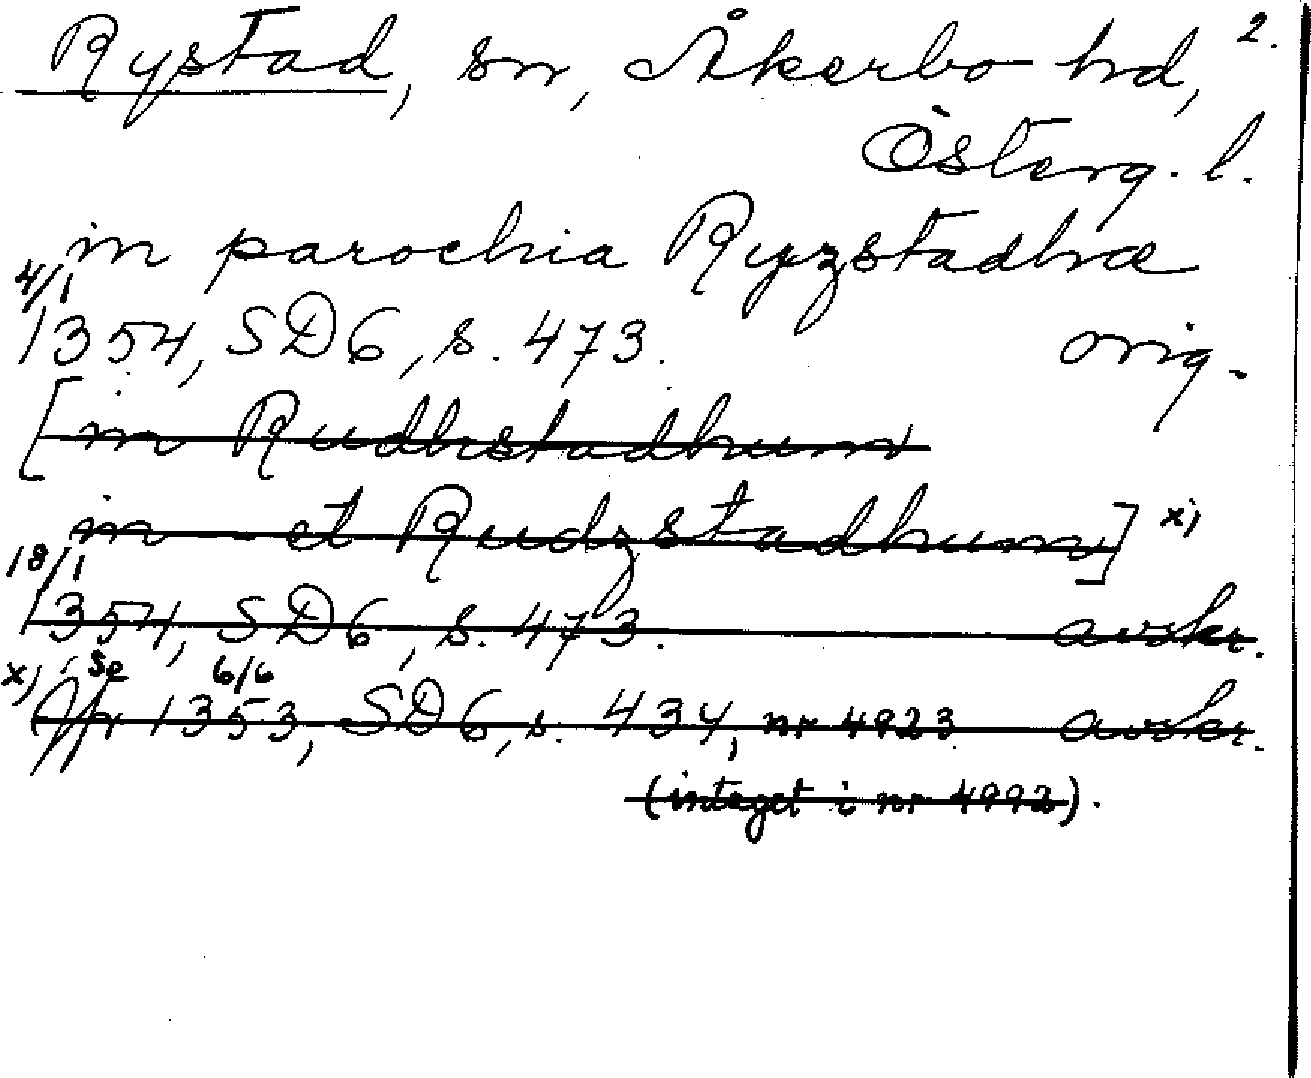 Rystad, sn, Åkerbo hd, 2.
Österg. l.
in parochia Ryzstadhæ
4/1
1354, SD6, s. 473. orig.
[in Rudhstadhum
in et Rudzstadhum] x)
18/1
1354, SD6, s. 473. avskr.
x) Se 6/6
Jfr 1353, SD6, s. 434, nr 4923 avskr.
(intaget i nr 4992).